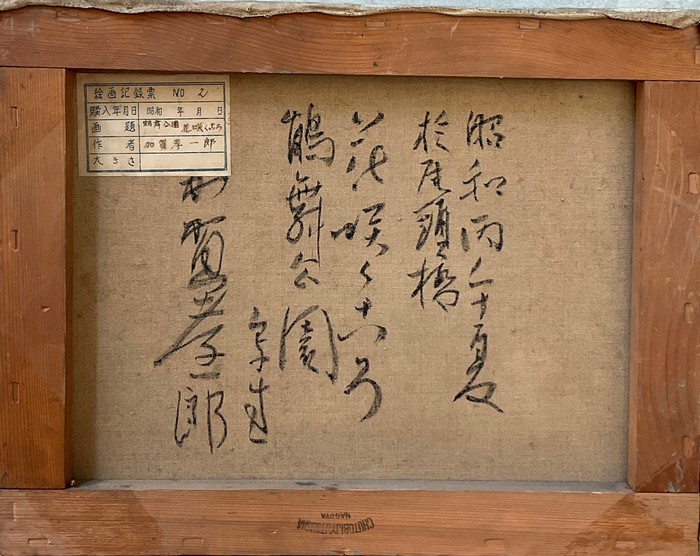 絵画記録票 NO 2
購入年月日 昭和 年 月 日
画題 鶴舞公園 花咲くころ
作者 加賀孝一郎
大きさ
昭和丙午夏
於尾頭橋
花咲く
鶴舞公園
写生
加賀孝一郎
NAGOYA